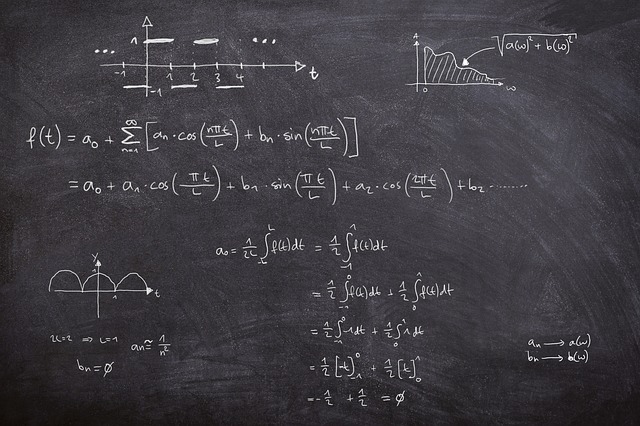 ... 1 ...
-1 1 2 3 4 t
-1
A √a(ω)² + b(ω)²
0 ω
f(t) = a₀ + ∞∑n=1 [aₙ · cos(nπt/L) + bₙ · sin(nπt/L)]
= a₀ + a₁ · cos(πt/L) + b₁ · sin(πt/L) + a₂ · cos(2πt/L) + b₂ ........
a₀ = 1/2L ∫₋LL f(t)dt = 1/2 ∫₋₁¹ f(t)dt
= 1/2 ∫₋₁⁰ f(t)dt + 1/2 ∫₀¹ f(t)dt
= 1/2 ∫₋₁⁰ -1 dt + 1/2 ∫₀¹ 1 dt
= 1/2 [-t]₋₁⁰ + 1/2 [t]₀¹
= -1/2 + 1/2 = ∅
y
1 t
2L=2 ⇒ L=1 aₙ ≅ 1/n²
bₙ = ∅
aₙ → a(ω)
bₙ → b(ω)